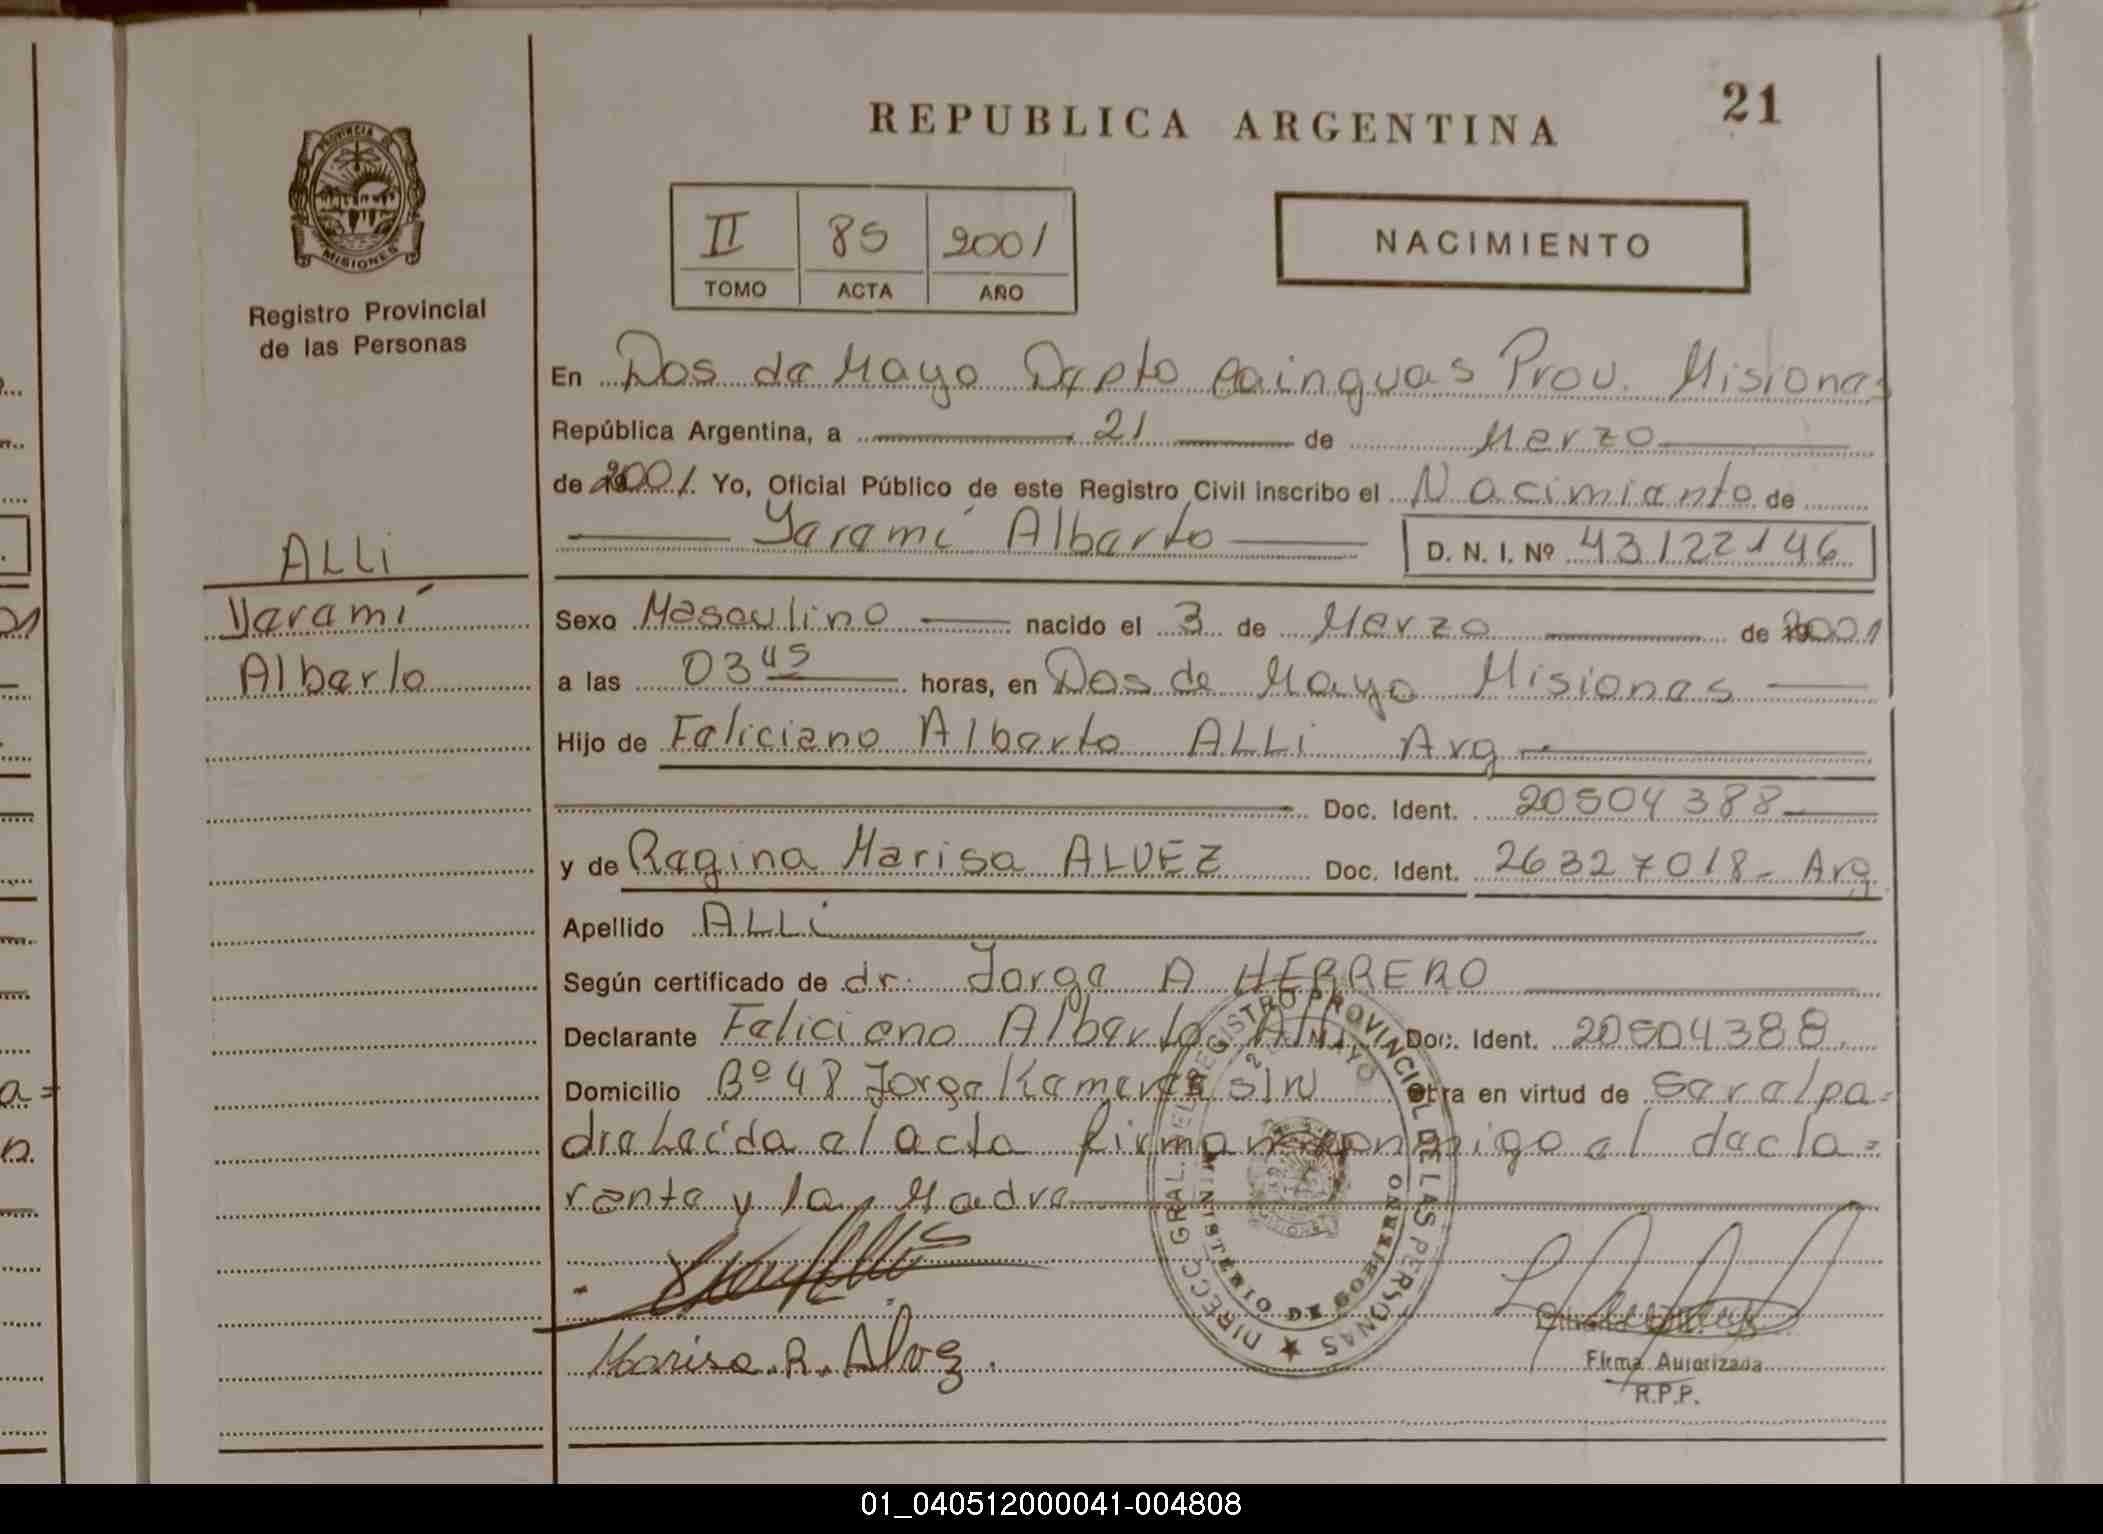 REPUBLICA ARGENTINA
21
PROVINCIA
MISIONES
Registro Provincial
de las Personas
II 85 2001
TOMO ACTA AÑO
NACIMIENTO
En Dos de Mayo Depto Cainguas Prov. Misiones
República Argentina, a 21 de Marzo
de 2001. Yo, Oficial Público de este Registro Civil inscribo el Nacimiento de
Yaramí Alberto D. N. I. Nº 43122146
ALLi
Yaramí
Alberto
Sexo Masculino nacido el 3 de Marzo de 2001
a las 03 45 horas, en Dos de Mayo Misiones
Hijo de Feliciano Alberto ALLi Arg
Doc. Ident. 20504388
y de Regina Marisa ALVEZ Doc. Ident. 26327018- Arg
Apellido ALLi
Según certificado de dr. Jorge A HERRERO
Declarante Feliciano Alberto Alli Doc. Ident. 20504388
Domicilio Bº 48 Jorge s/N Obra en virtud de Ser el pa=
dre Leída el acta firman conmigo el decla=
rante y la Madre
DIRECC. GRAL. DEL REGISTRO PROVINCIAL DE LAS PERSONAS
2 DE MAYO
MINISTERIO DE GOBIERNO
Marisa.R.Alvez.
Firma Autorizada
R.P.P.
01_040512000041-004808